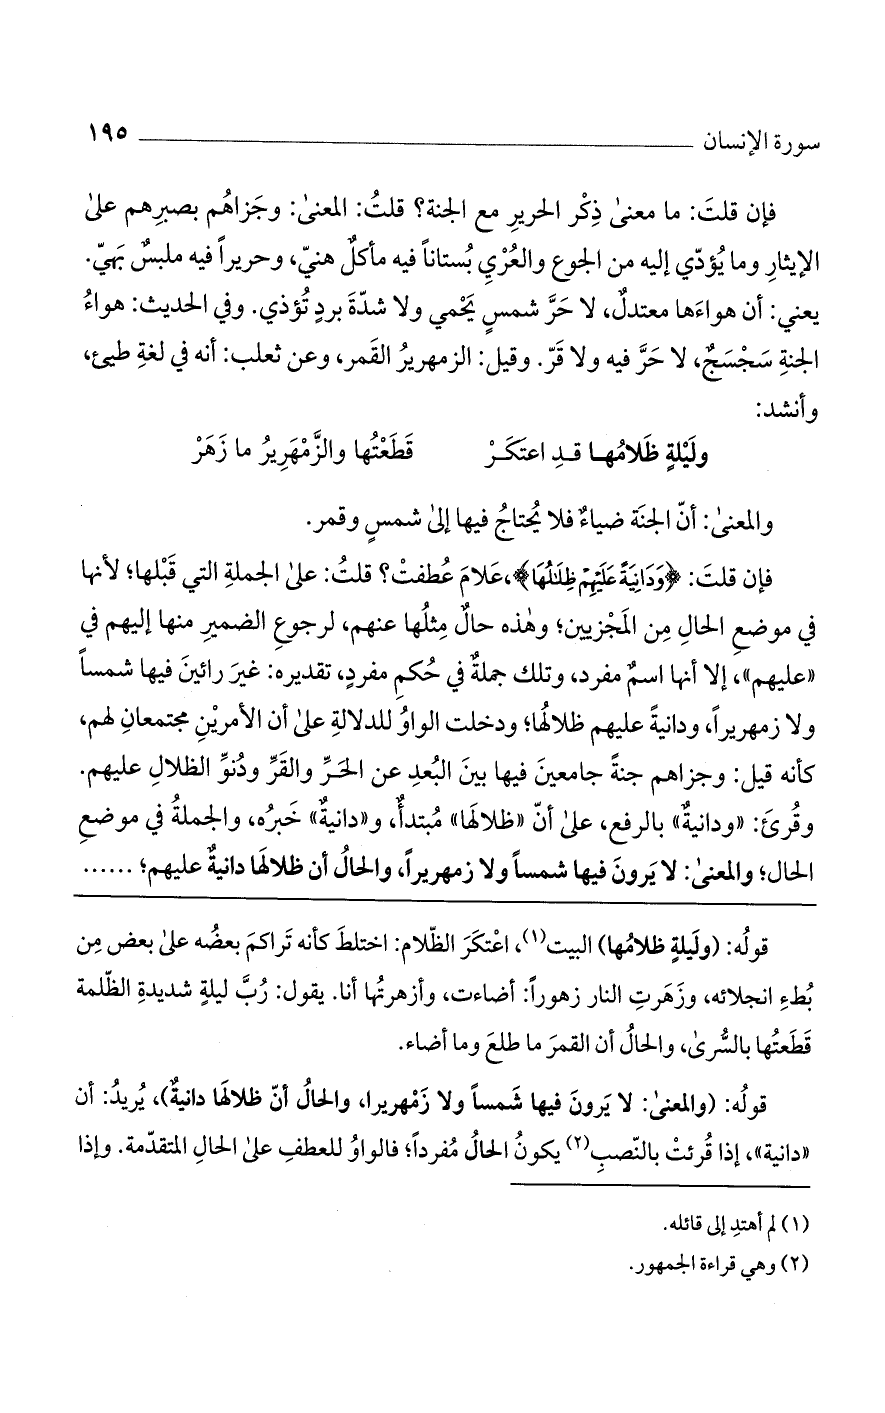 سورة الإنسان ١٩٥
فإن قلتَ: ما معنىٰ ذِكْر الحريرِ مع الجنة؟ قلتُ: المعنىٰ: وجَزاهُم بصبرِهم علىٰ
الإيثارِ وما يُؤدّي إليه من الجوع والعُرْيِ بُستاناً فيه مأكلٌ هنيّ، وحريراً فيه ملبسٌ بَهيّ.
يعني: أن هواءَها معتدلٌ، لا حَرَّ شمسٍ يَحْمي ولا شدّةَ بردٍ تُؤذي. وفي الحديث: هواءُ
الجنةِ سَجْسَجٌ، لا حَرَّ فيه ولا قَرّ. وقيل: الزمهريرُ القَمر، وعن ثعلب: أنه في لغةِ طيئ،
وأنشد:
ولَيْلةٍ ظَلامُهـا قـدِ اعتَكَـرْ قَطَعْتُها والزَّمْهَرِيرُ ما زَهَرْ
والمعنىٰ: أنّ الجنَة ضياءٌ فلا يُحتاجُ فيها إلىٰ شمسٍ وقمر.
فإن قلتَ: ﴿وَدَانِيَةً عَلَيْهِمْ ظِلَٰلُهَا﴾، عَلامَ عُطفتْ؟ قلتُ: علىٰ الجملةِ التي قَبْلها؛ لأنها
في موضعِ الحالِ مِن المَجْزيين؛ وهٰذه حالٌ مِثلُها عنهم، لرجوعِ الضميرِ منها إليهم في
«عليهم»، إلا أنها اسمٌ مفرد، وتلك جملةٌ في حُكمِ مفردٍ، تقديره: غيرَ رائينَ فيها شمساً
ولا زمهريراً، ودانيةً عليهم ظلالُها؛ ودخلت الواوُ للدلالةِ علىٰ أن الأمريْنِ مجتمعانِ لهم،
كأنه قيل: وجزاهم جنةً جامعينَ فيها بينَ البُعدِ عن الحَـرِّ والقَرِّ ودُنوِّ الظلالِ عليهم.
وقُرئَ: «ودانيةٌ» بالرفع، علىٰ أنّ «ظلالهَا» مُبتدأٌ، و«دانيةٌ» خَبرُه، والجملةُ في موضعِ
الحال؛ والمعنىٰ: لا يَرونَ فيها شمساً ولا زمهريراً، والحالُ أن ظلالهَا دانيةٌ عليهم؛ ......
قولُه: (ولَيلةٍ ظلامُها) البيت(١)، اعْتكَرَ الظّلام: اختلطَ كأنه تَراكمَ بعضُه علىٰ بعض مِن
بُطءِ انجلائه، وزَهَرتِ النار زهوراً: أضاءت، وأزهرتُها أنا. يقول: رُبَّ ليلةٍ شديدةِ الظّلمة
قَطَعتُها بالسُّرىٰ، والحالُ أن القمرَ ما طلعَ وما أضاء.
قولُه: (والمعنىٰ: لا يَرونَ فيها شَمساً ولا زَمْهريرا، والحالُ أنّ ظلالهَا دانيةٌ)، يُريدُ: أن
«دانية»، إذا قُرئتْ بالنّصبِ(٢) يكونُ الحالُ مُفرداً؛ فالواوُ للعطفِ علىٰ الحالِ المتقدّمة. وإذا
(١) لم أهتدِ إلى قائله.
(٢) وهي قراءة الجمهور.